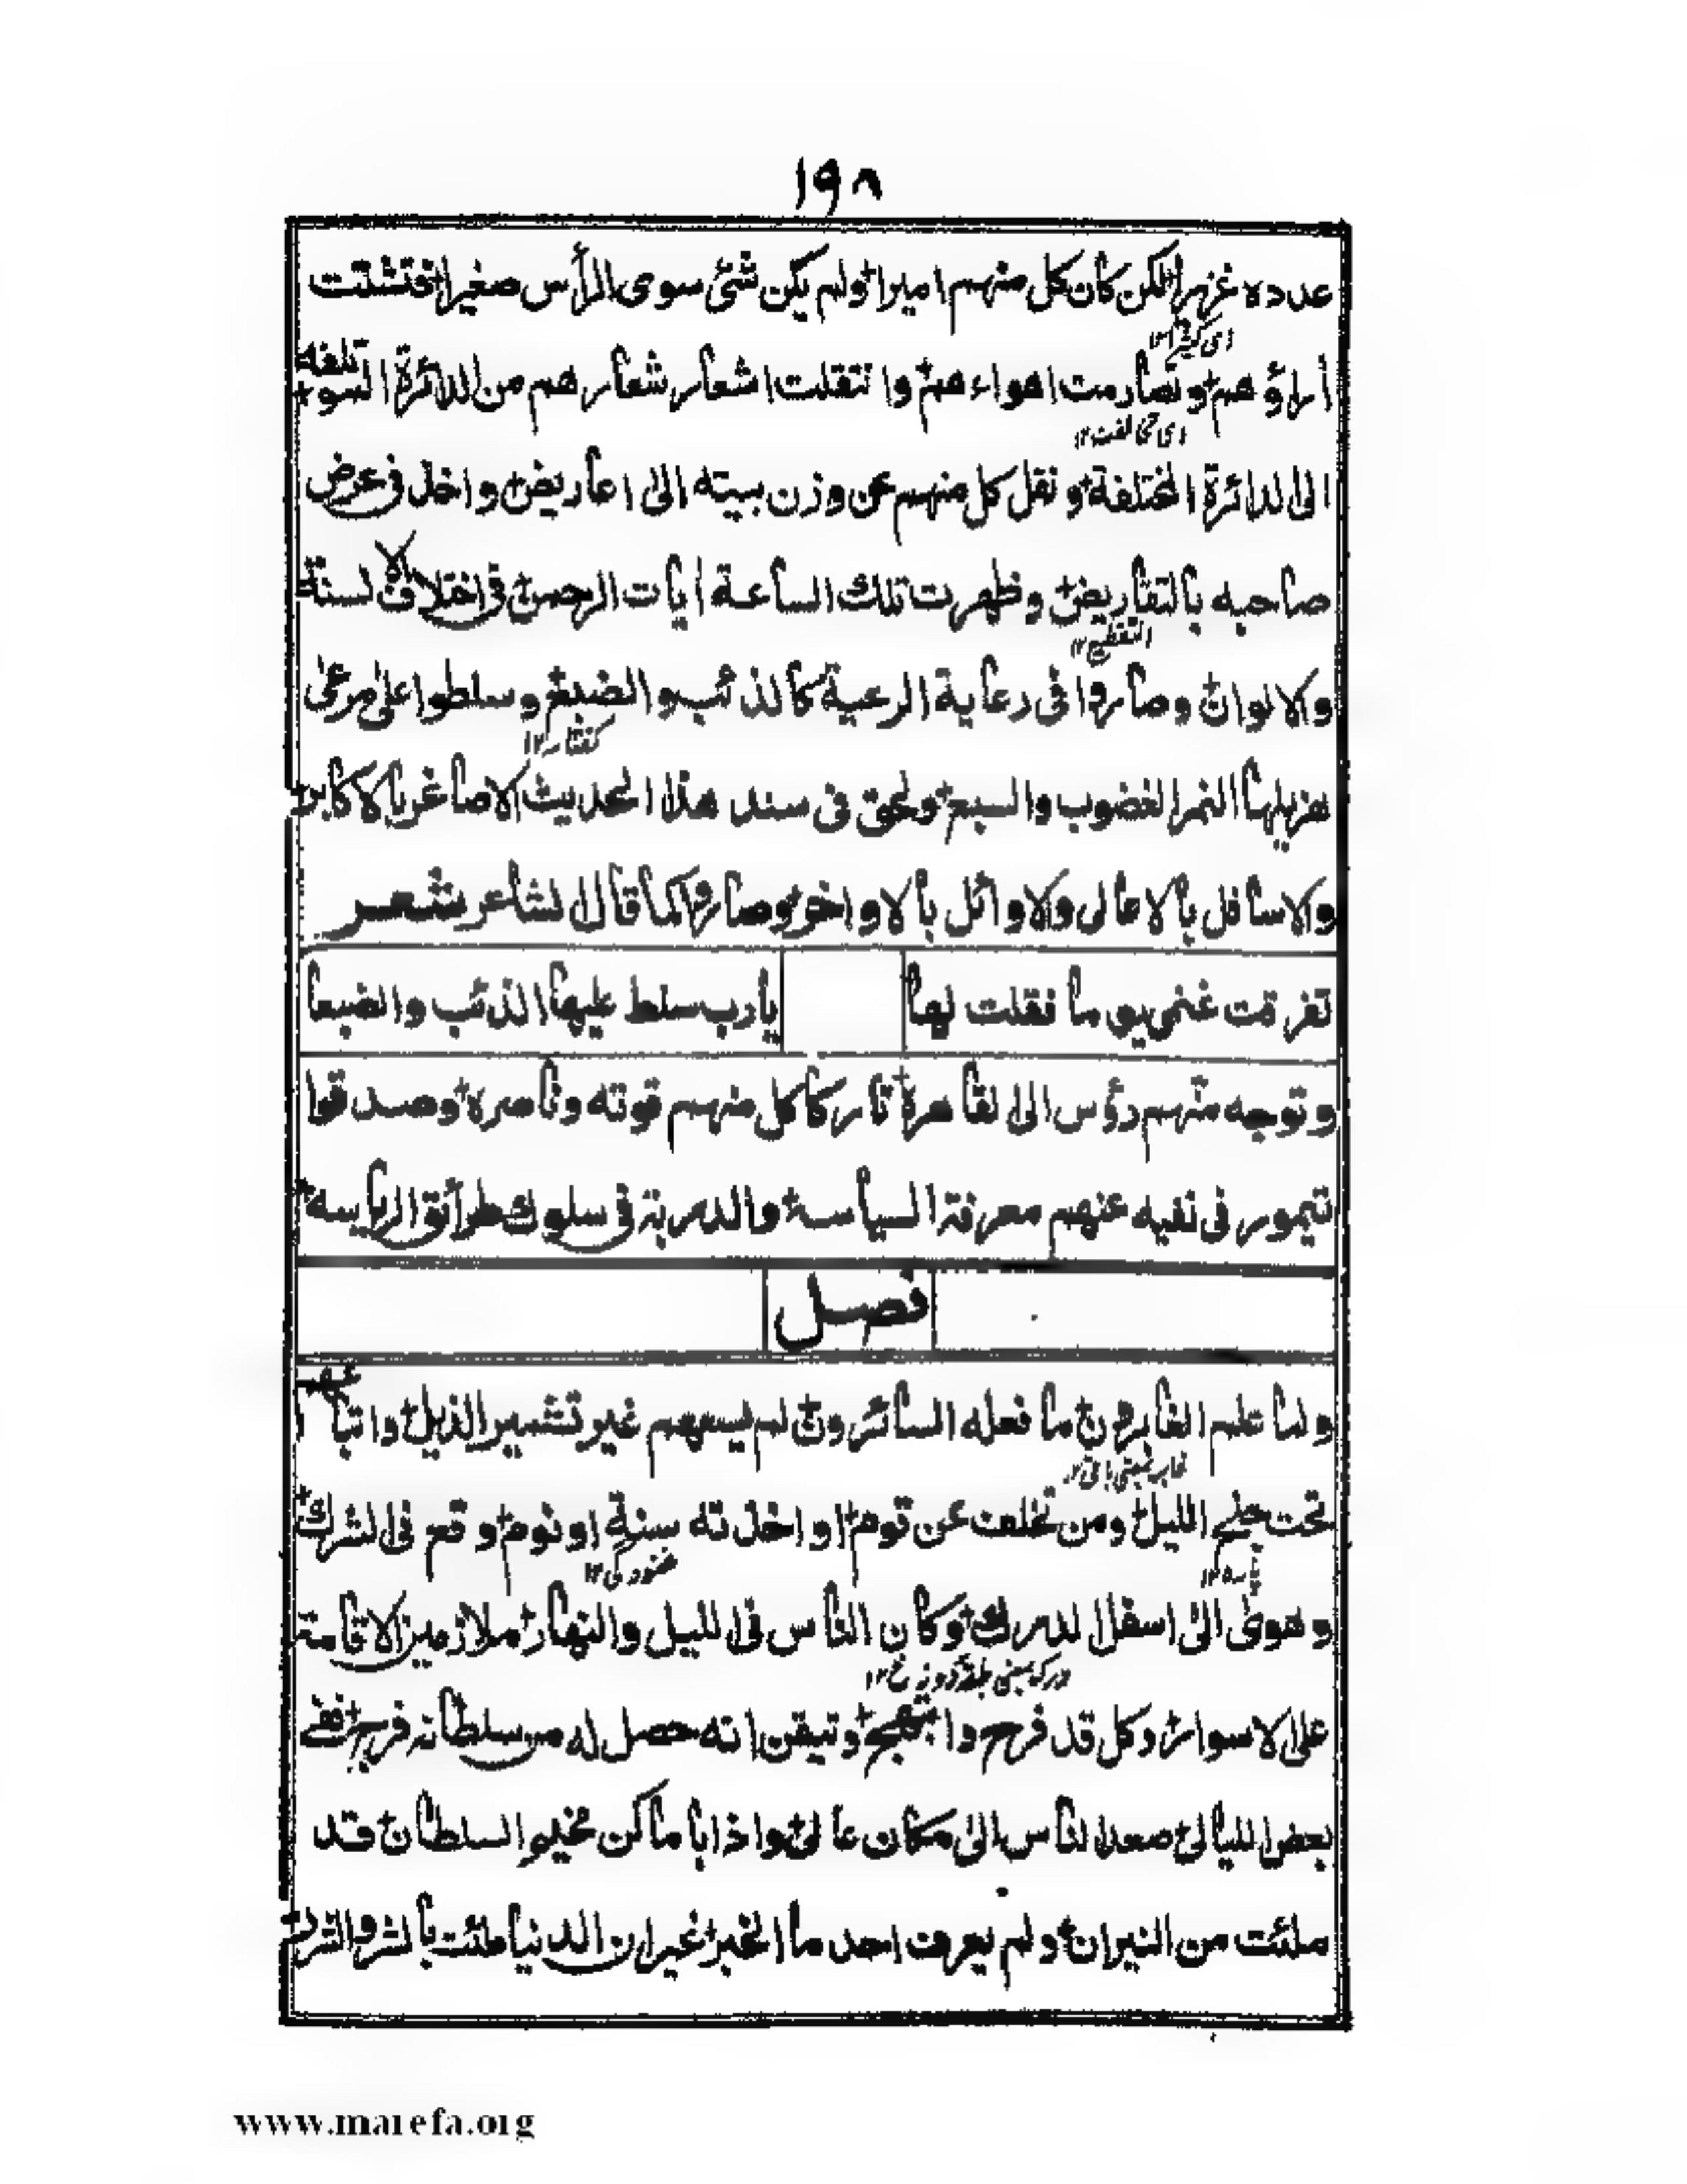 ١٩٨
عدده غزيرا لكن كان كل منهم اميرا ولم يكن شئ سوى الرأس صغيرا فتشتتت
اى كثيرا ١٢
أراؤ هم وتصارمت اهواء هم وا نتقلت اشعار شعار هم من الدائرة المؤتلفه
اى مخالفت ١٢
الى الدائرة المختلفة ونقل كل منهم عن وزن بيته الى اعاريض واخذ فى عرض
صاحبه بالتقاريض وظهرت تلك الساعة ايات الرحمن فى اختلاف الالسنة
التقطيع ١٢
والالوان وصاروا فى رعاية الرعية كالذئب والضبع وسلطوا على مرعى
كفتار ١٢
هزيلها النمر الغضوب والسبع ولحق فى سند هذا الحديث الاصاغر بالاكابر
والاسافل بالاعالى والاوائل بالاواخر وصاروا كما قال الشاعر شعر
تفرقت غنمى يوما فقلت لها
يارب سلط عليها الذئب والضبعا
وتوجه منهم رؤس الى القاهرة تاركا كل منهم قوته وناصره وصدقوا
تيمور فى نفيه عنهم معرفة السياسة والدربة فى سلوك طرائق الرياسه
فصل
ولما علم الغابرون ما فعله السائرون لم يسعهم غير تشمير الذيل واتباعهم
غابر بمعنى باقى ١٢
تحت جنح الليل ومن تخلف عن قوم او اخذته سنة او نوم وقع فى الشرك
پاره ١٢
غنودگى ١٢
وهوى الى اسفل الدرك وكان الناس فى الليل والنهار ملازمين الاقامة
درك بمعنى طبقه دوزخ ١٢
على الاسوار وكل قد فرح وابتهج وتيقن انه حصل له من سلطانه فرج ففى
بعض الليالى صعد الناس الى مكان عالى واذا باماكن مخيم السلطان قد
ملئت من النيران ولم يعرف احد ما الخبر غير ان الدنيا ملئت بالشر والشرر
www.marefa.org